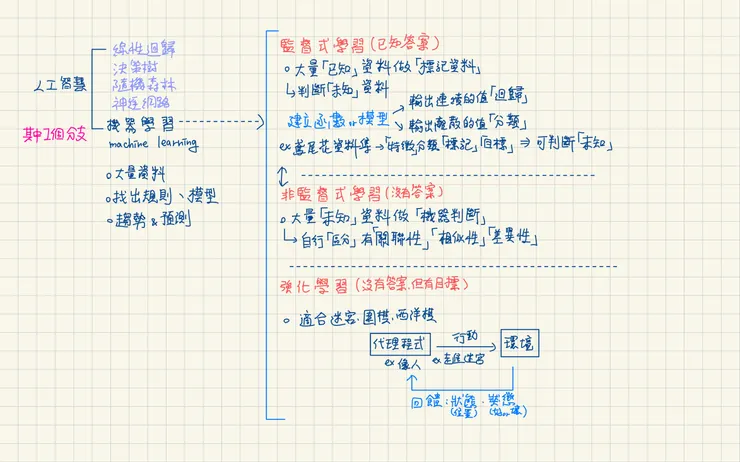 人工智慧
其中1個分支
線性迴歸
決策樹
隨機森林
神經網路
機器學習
machine learning
大量資料
找出規則、模型
趨勢&預測
監督式學習(已知答案)
大量「已知」資料做「標記資料」
判斷「未知」資料
建立函數or模型
輸出連續的值「迴歸」
輸出離散的值「分類」
ex鳶尾花資料集→「特徵」分類「標記」「目標」⇒可判斷「未知」
非監督式學習(沒有答案)
大量「未知」資料做「機器判斷」
自行「區分」有「關聯性」「相似性」「差異性」
強化學習(沒有答案,但有目標)
適合迷宮.圍棋.西洋棋
代理程式
行動
環境
ex像人
ex走進迷宮
回饋:狀態.獎懲
(位置)